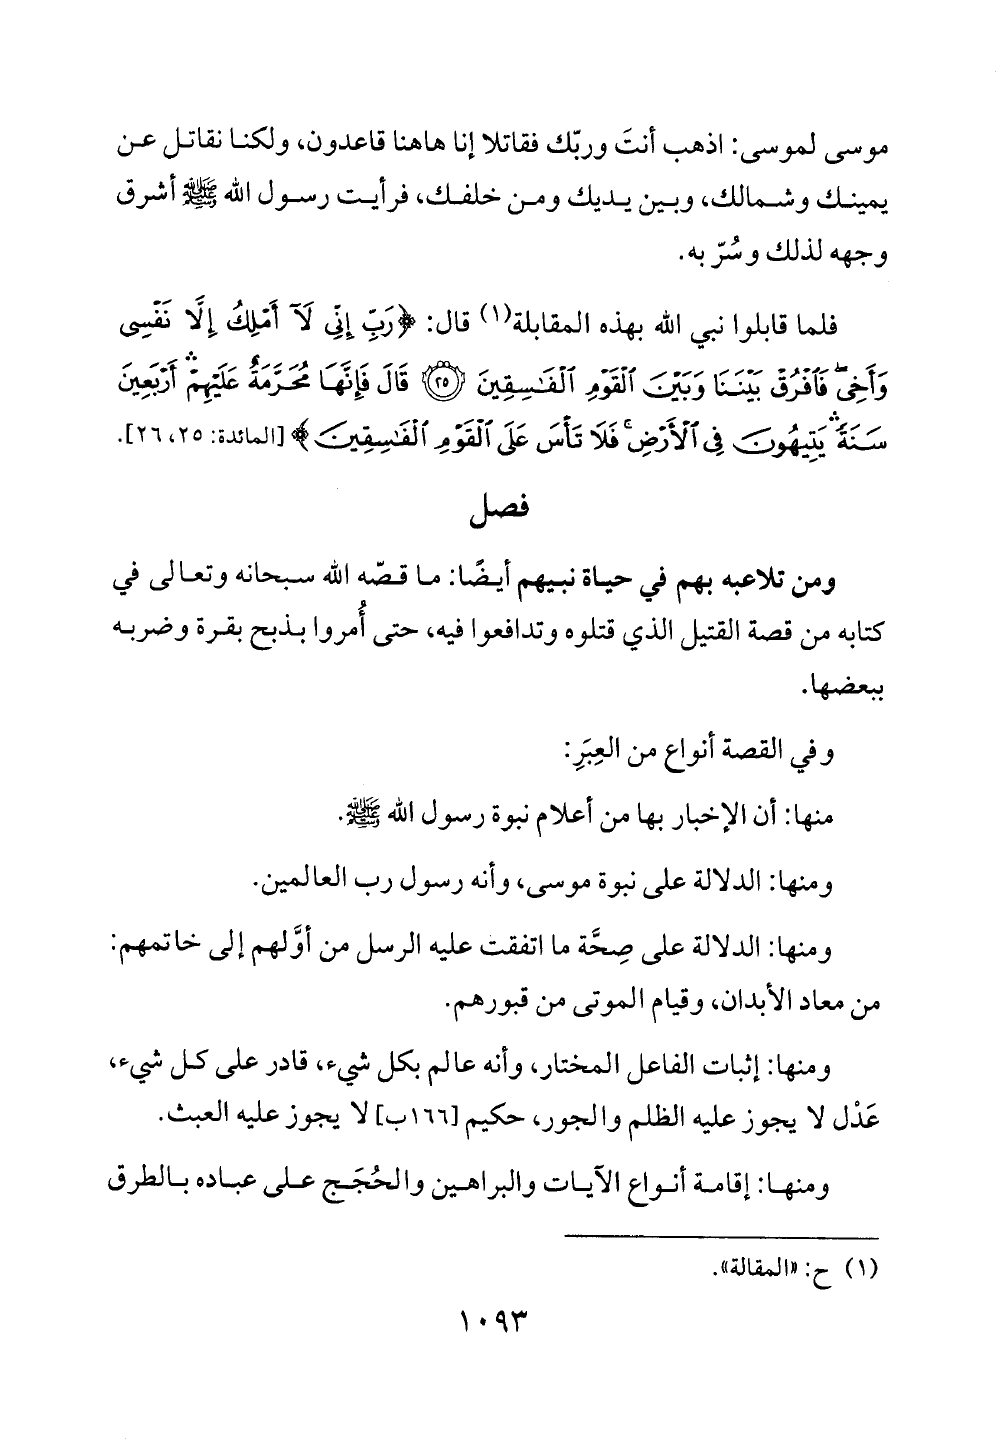 موسى لموسى: اذهب أنتَ وربّك فقاتلا إنا هاهنا قاعدون، ولكنا نقاتل عن
يمينك وشمالك، وبين يديك ومن خلفك، فرأيت رسول الله ﷺ أشرق
وجهه لذلك وسُرّ به.
فلما قابلوا نبي الله بهذه المقابلة(١) قال: ﴿رَبِّ إِنِّي لَآ أَمْلِكُ إِلَّا نَفْسِى
وَأَخِىۖ فَٱفْرُقْ بَيْنَنَا وَبَيْنَ ٱلْقَوْمِ ٱلْفَٰسِقِينَ ۝٢٥ قَالَ فَإِنَّهَا مُحَرَّمَةٌ عَلَيْهِمْۛ أَرْبَعِينَ
سَنَةًۛ يَتِيهُونَ فِى ٱلْأَرْضِۚ فَلَا تَأْسَ عَلَى ٱلْقَوْمِ ٱلْفَٰسِقِينَ﴾ [المائدة: ٢٥، ٢٦].
فصل
ومن تلاعبه بهم في حياة نبيهم أيضًا: ما قصّه الله سبحانه وتعالى في
كتابه من قصة القتيل الذي قتلوه وتدافعوا فيه، حتى أُمروا بذبح بقرة وضربه
ببعضها.
وفي القصة أنواع من العِبَرِ:
منها: أن الإخبار بها من أعلام نبوة رسول الله ﷺ.
ومنها: الدلالة على نبوة موسى، وأنه رسول رب العالمين.
ومنها: الدلالة على صِحَّة ما اتفقت عليه الرسل من أوَّلهم إلى خاتمهم:
من معاد الأبدان، وقيام الموتى من قبورهم.
ومنها: إثبات الفاعل المختار، وأنه عالم بكل شيء، قادر على كل شيء،
عَدْل لا يجوز عليه الظلم والجور، حكيم [١٦٦ب] لا يجوز عليه العبث.
ومنها: إقامة أنواع الآيات والبراهين والحُجَج على عباده بالطرق
(١) ح: «المقالة».
١٠٩٣